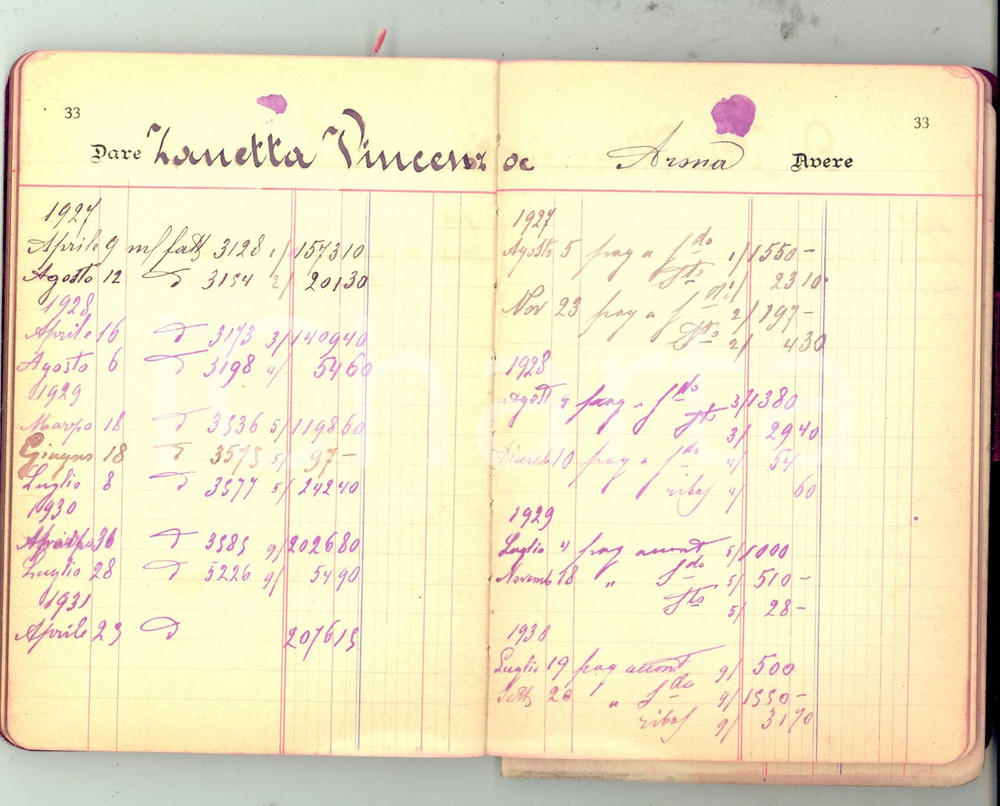 33
Dare Zanetta Vincenzo
1927
Aprile 9 m/ fatt 3128 1/ 1573 10
Agosto 12 D 3154 2/ 201 30
1928
Aprile 16 D 3173 3/ 1409 40
Agosto 6 D 3198 4/ 54 60
1929
Marzo 18 D 3536 5/ 1198 60
Giugno 18 D 3573 5/ 97 -
Luglio 8 D 3577 5/ 242 40
1930
26 D 3585 9/ 2026 80
Luglio 28 D 5226 9/ 54 90
1931
Aprile 23 D 2076 15
33
de Arona Avere
1927
Agosto 5 pag a Sdo 1/ 1550 -
Sto 23 10
Nov 23 pag a Sdo 2/ 197 -
Sto 2/ 4 30
1928
Agost 4 pag a Sdo 3/ 1380
St 3/ 29 40
10 pag a Sdo 4/ 54
ribas 4/ 60
1929
Luglio 4 pag acont 5/ 1000
Novemb 18 " Sdo 5/ 510 -
Sto 5/ 28 -
1930
Luglio 19 pag acont 9/ 500
Sett 20 " Sdo 9/ 1550 -
ribas 9/ 31 70